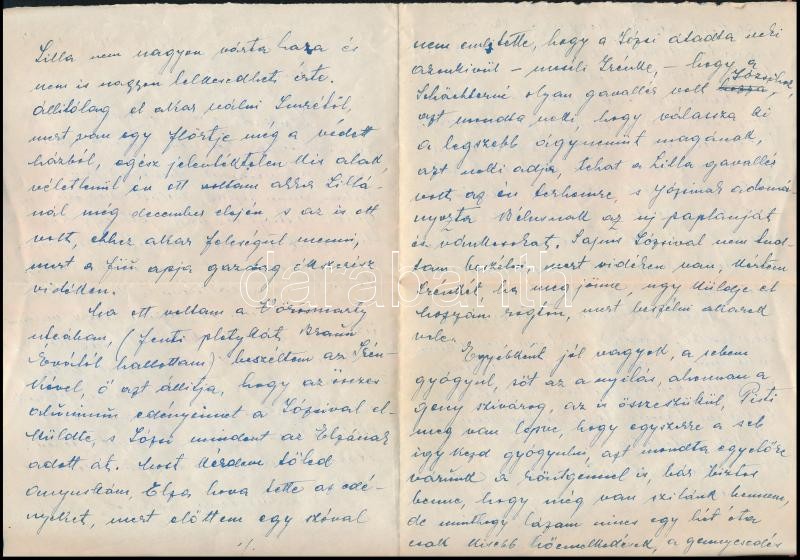 Lilla nem nagyon várta haza és
nem is nagyon lelkesedhets érte.
Állitólag el akar válni Imrétől,
mert van egy flörtje még a védett
házból, egész jelentéktelen kis alak,
véletlenül én ott voltam akkor Lillá-
nál még december elején, s az is ott
volt, ehhez akar feleségül menni,
mert a fiú apja gazdag ékszerész
vidéken.
Ma ott voltam a Vörösmarty
utcában, (fenti pletykát, Braun
Évától hallottam) beszéltem az Irén-
kével, ő azt állitja, hogy az összes
aluminium edényeimet a Józsival el-
küldte, s Józsi mindent az Elzának
adott át. Most kérdem tőled
Anyuskám, Elza hova tette az edé-
nyeket, mert előttem egy szóval
./.
nem emlitette, hogy a Józsi átadta neki
azonkivül – meséli Irénke, – hogy a
Schächterné olyan gavallér volt hozza, Józsihoz,
azt mondta neki, hogy válassza ki
a legszebb ágyneműt magának,
azt neki adja, tehát a Lilla gavallér
volt az én terhemre, s Józsinak adomá-
nyozta Bélusnak az uj paplanját
és vánkosokat. Sajnos Józsival nem tud-
tam beszélni, mert vidéken van, kértem
Irénkét, ha megjönne, ugy küldje el
hozzám rögtön, mert beszélni akarok
vele.
Egyébként jól vagyok, a sebem
gyógyul, sőt az a nyilás, ahonnan a
geny szivárog, az is összeszükül, Pesti
meg van lepve, hogy egyszerre a seb
igy kezd gyógyulni, azt mondta egyelőre
várunk a röntgennel is, bár biztos
benne, hogy még van szilánk bennem,
de minthogy lázam nincs egy hét óta
csak kisebb hőemelkedések, a gennyesedés
darabanth